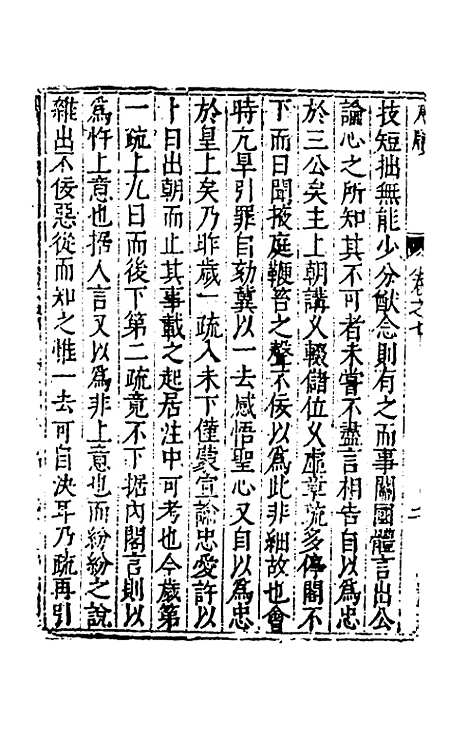 卷之七
技短拙無能少分猷念則有之而事關國體言出公
論心之所知其不可者未嘗不盡言相告自以爲忠
於三公矣主上朝講乂輟儲位乂虛章疏多停閣不
下而日聞掖庭鞭笞之聲不佞以爲此非細故也會
時亢旱引罪自劾冀以一去感悟聖心又自以爲忠
於皇上矣乃昨歲一疏入未下僅蒙宣諭忠愛許以
十日出朝而止其事載之起居注中可考也今歲第
一疏上九日而後下第二疏竟不下据內閣言則以
爲忤上意也揆人言又以爲非上意也而紛紛之說
雜出不佞惡從而知之惟一去可自決耳乃疏再引